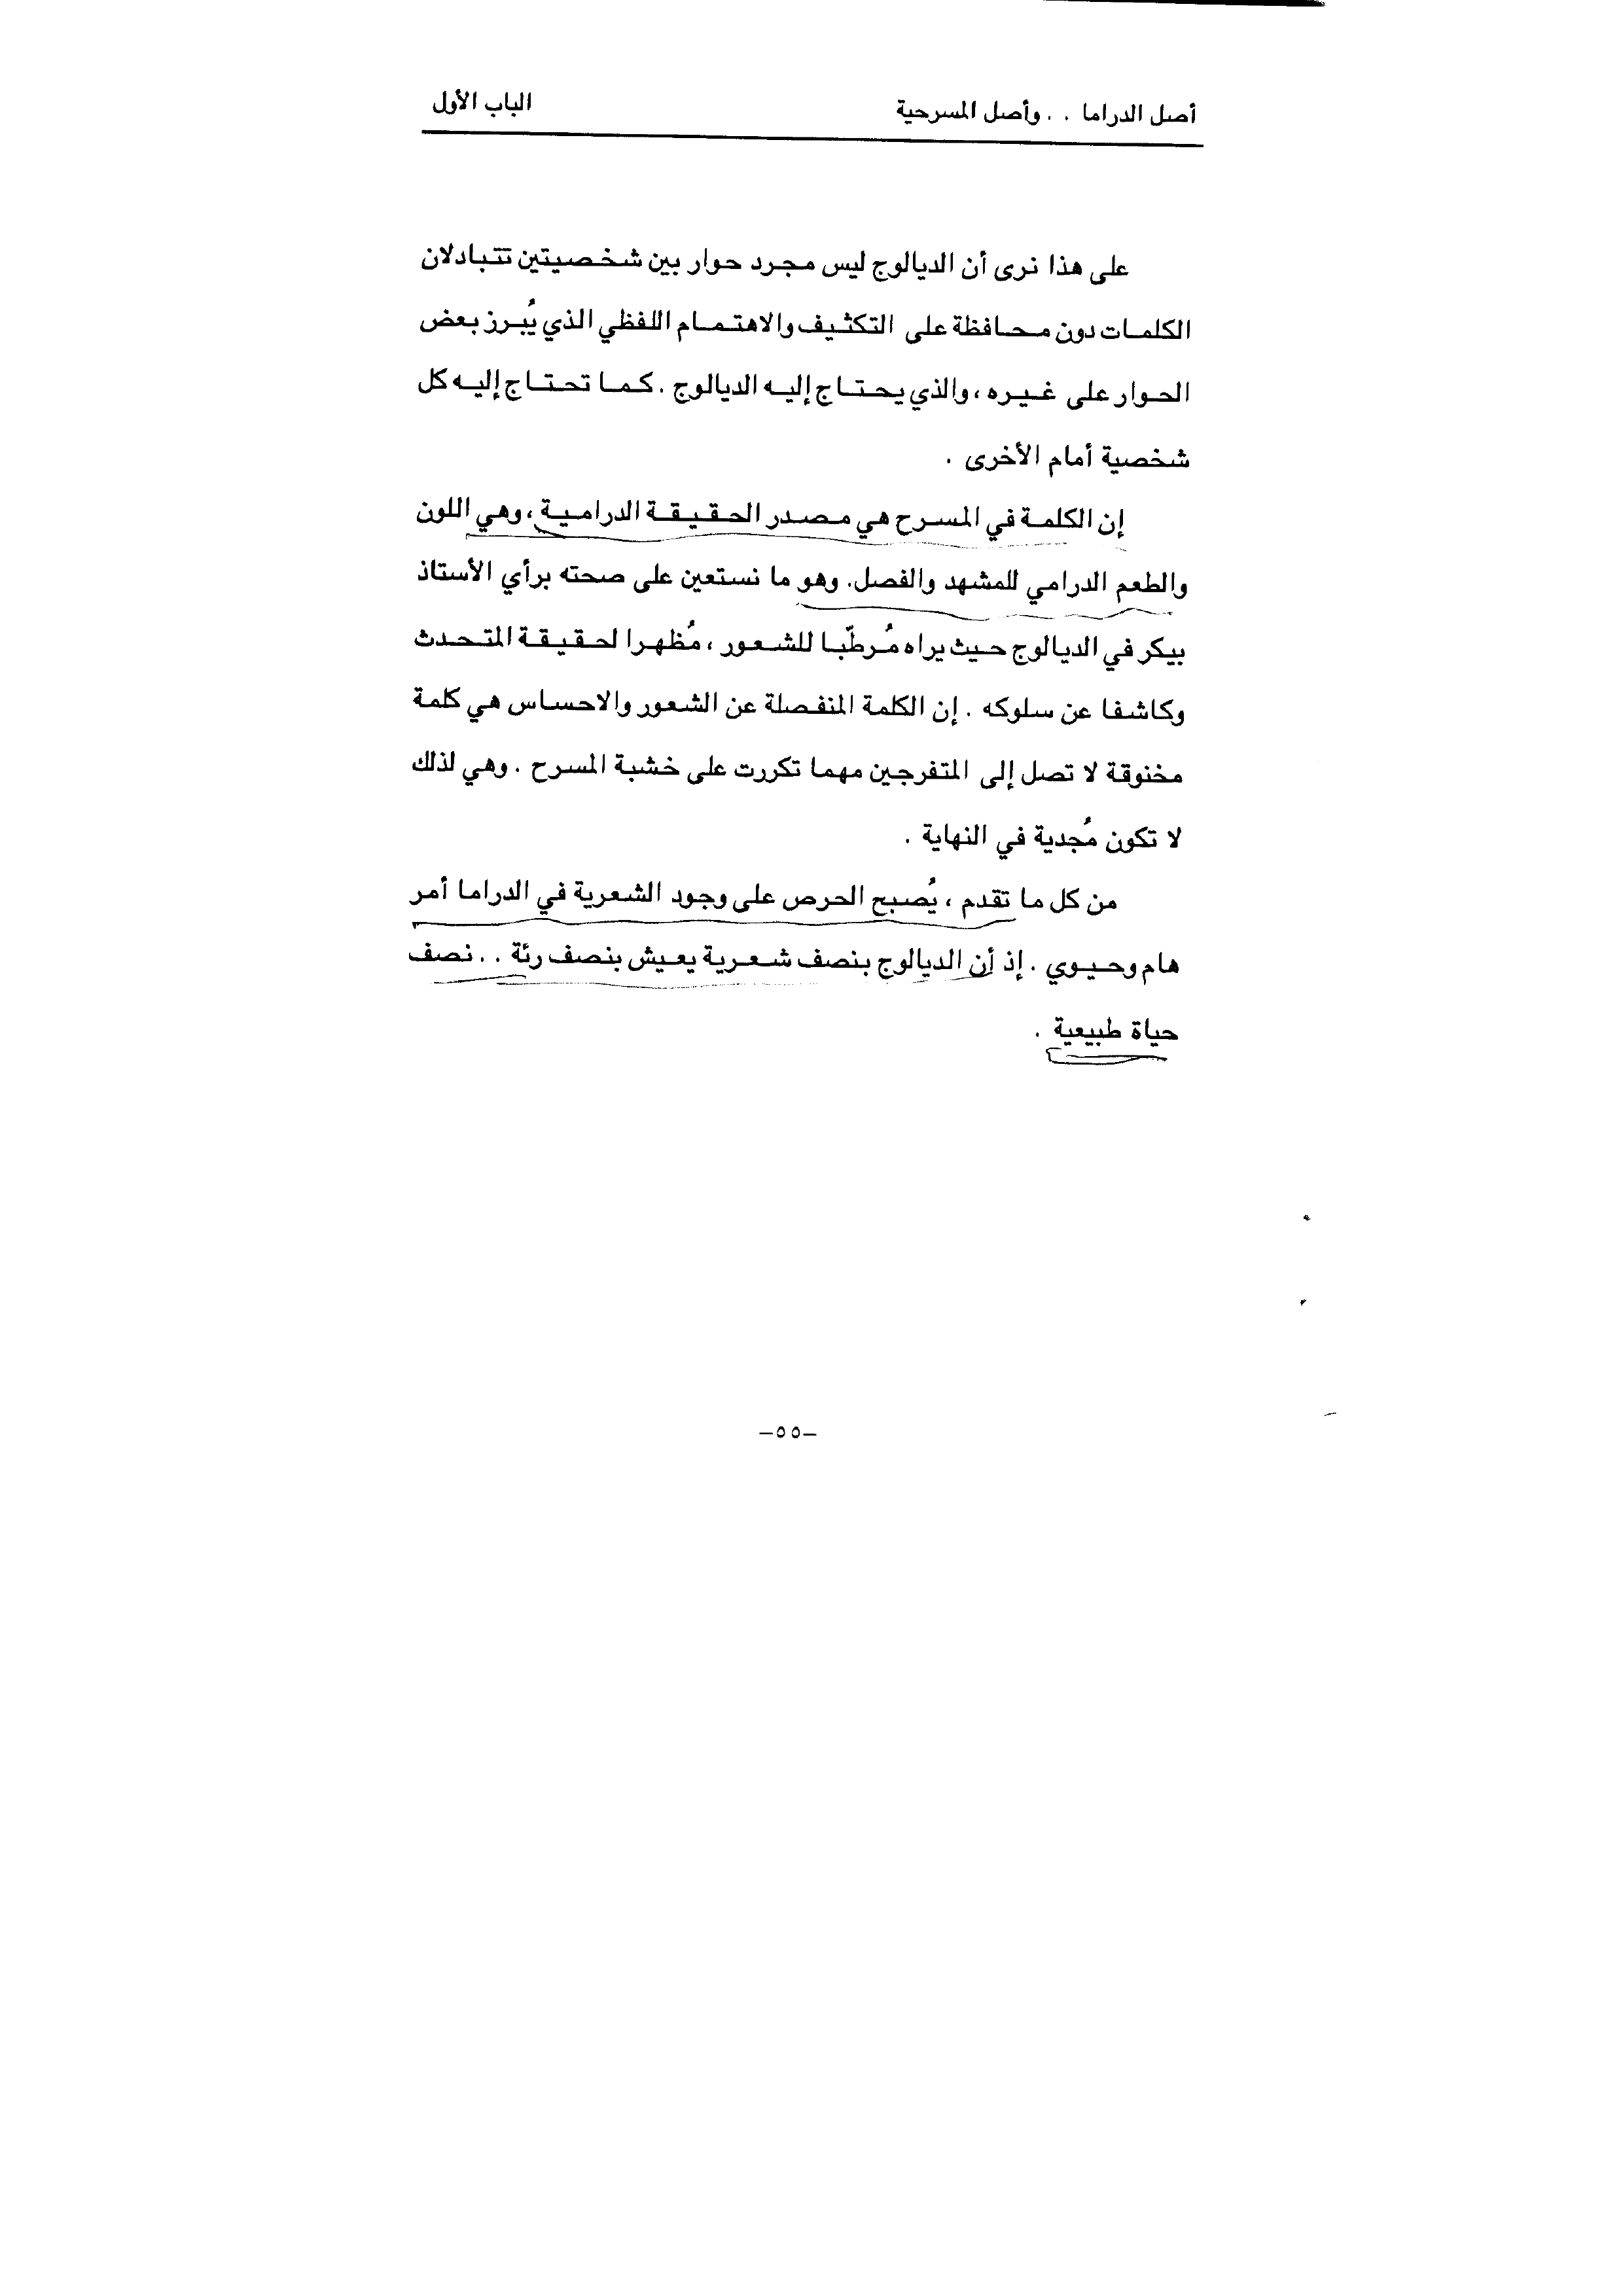 أصل الدراما . . وأصل المسرحية
الباب الأول
على هذا نرى أن الديالوج ليس مجرد حوار بين شخصيتين تتبادلان
الكلمات دون محافظة على التكثيف والاهتمام اللفظي الذي يُبرز بعض
الحوار على غيره ، والذي يحتاج إليه الديالوج . كما تحتاج إليه كل
شخصية أمام الأخرى .
إن الكلمة في المسرح هي مصدر الحقيقة الدرامية ، وهي اللون
والطعم الدرامي للمشهد والفصل. وهو ما نستعين على صحته برأي الأستاذ
بيكر في الديالوج حيث يراه مُرطّبا للشعور ، مُظهرا لحقيقة المتحدث
وكاشفا عن سلوكه . إن الكلمة المنفصلة عن الشعور والاحساس هي كلمة
مخنوقة لا تصل إلى المتفرجين مهما تكررت على خشبة المسرح . وهي لذلك
لا تكون مُجدية في النهاية .
من كل ما تقدم ، يُصبح الحرص على وجود الشعرية في الدراما أمر
هام وحيوي . إذ أن الديالوج بنصف شعرية يعيش بنصف رئة . . نصف
حياة طبيعية .
–٥٥–